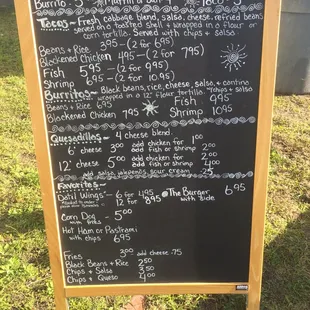 Burrito
Tacos - Fresh cabbage blend, salsa, cheese, refried beans
served on a toasted and wrapped in a flour or
corn tortilla. Served with chips + salsa
Beans + Rice 3.95 - (2 for 6.95)
Blackened Chicken 4.95 - (2 for 7.95)
Fish 5.95 - (2 for 9.95)
Shrimp 6.95 - (2 for 10.95)
Burritos - Black beans, rice, cheese, salsa, + cantina
wrapped in a 12" flour tortilla. Tchips + salsa
Beans + Rice 6.95 Fish 9.95
Blackened Chicken 7.95 Shrimp 10.95
Quesadillas - 4 cheese blend.
6" cheese 3.00 add chicken for 1.00
add fish or shrimp 2.00
12" cheese 5.00 add chicken 2.00
add fish or shrimp 4.00
add salsa, jalapenos, sour cream .25
Favorites -
Datil Wings - 6 for 4.95 The Burger 6.95
12 for 8.95 with side
Corn Dog - 5.00
with fries
Hot Ham or Pastrami
with chips 6.95
Fries 3.00 add cheese .75
Black Beans + Rice 2.50
Chips + Salsa 3.50
Chips + Queso 4.00